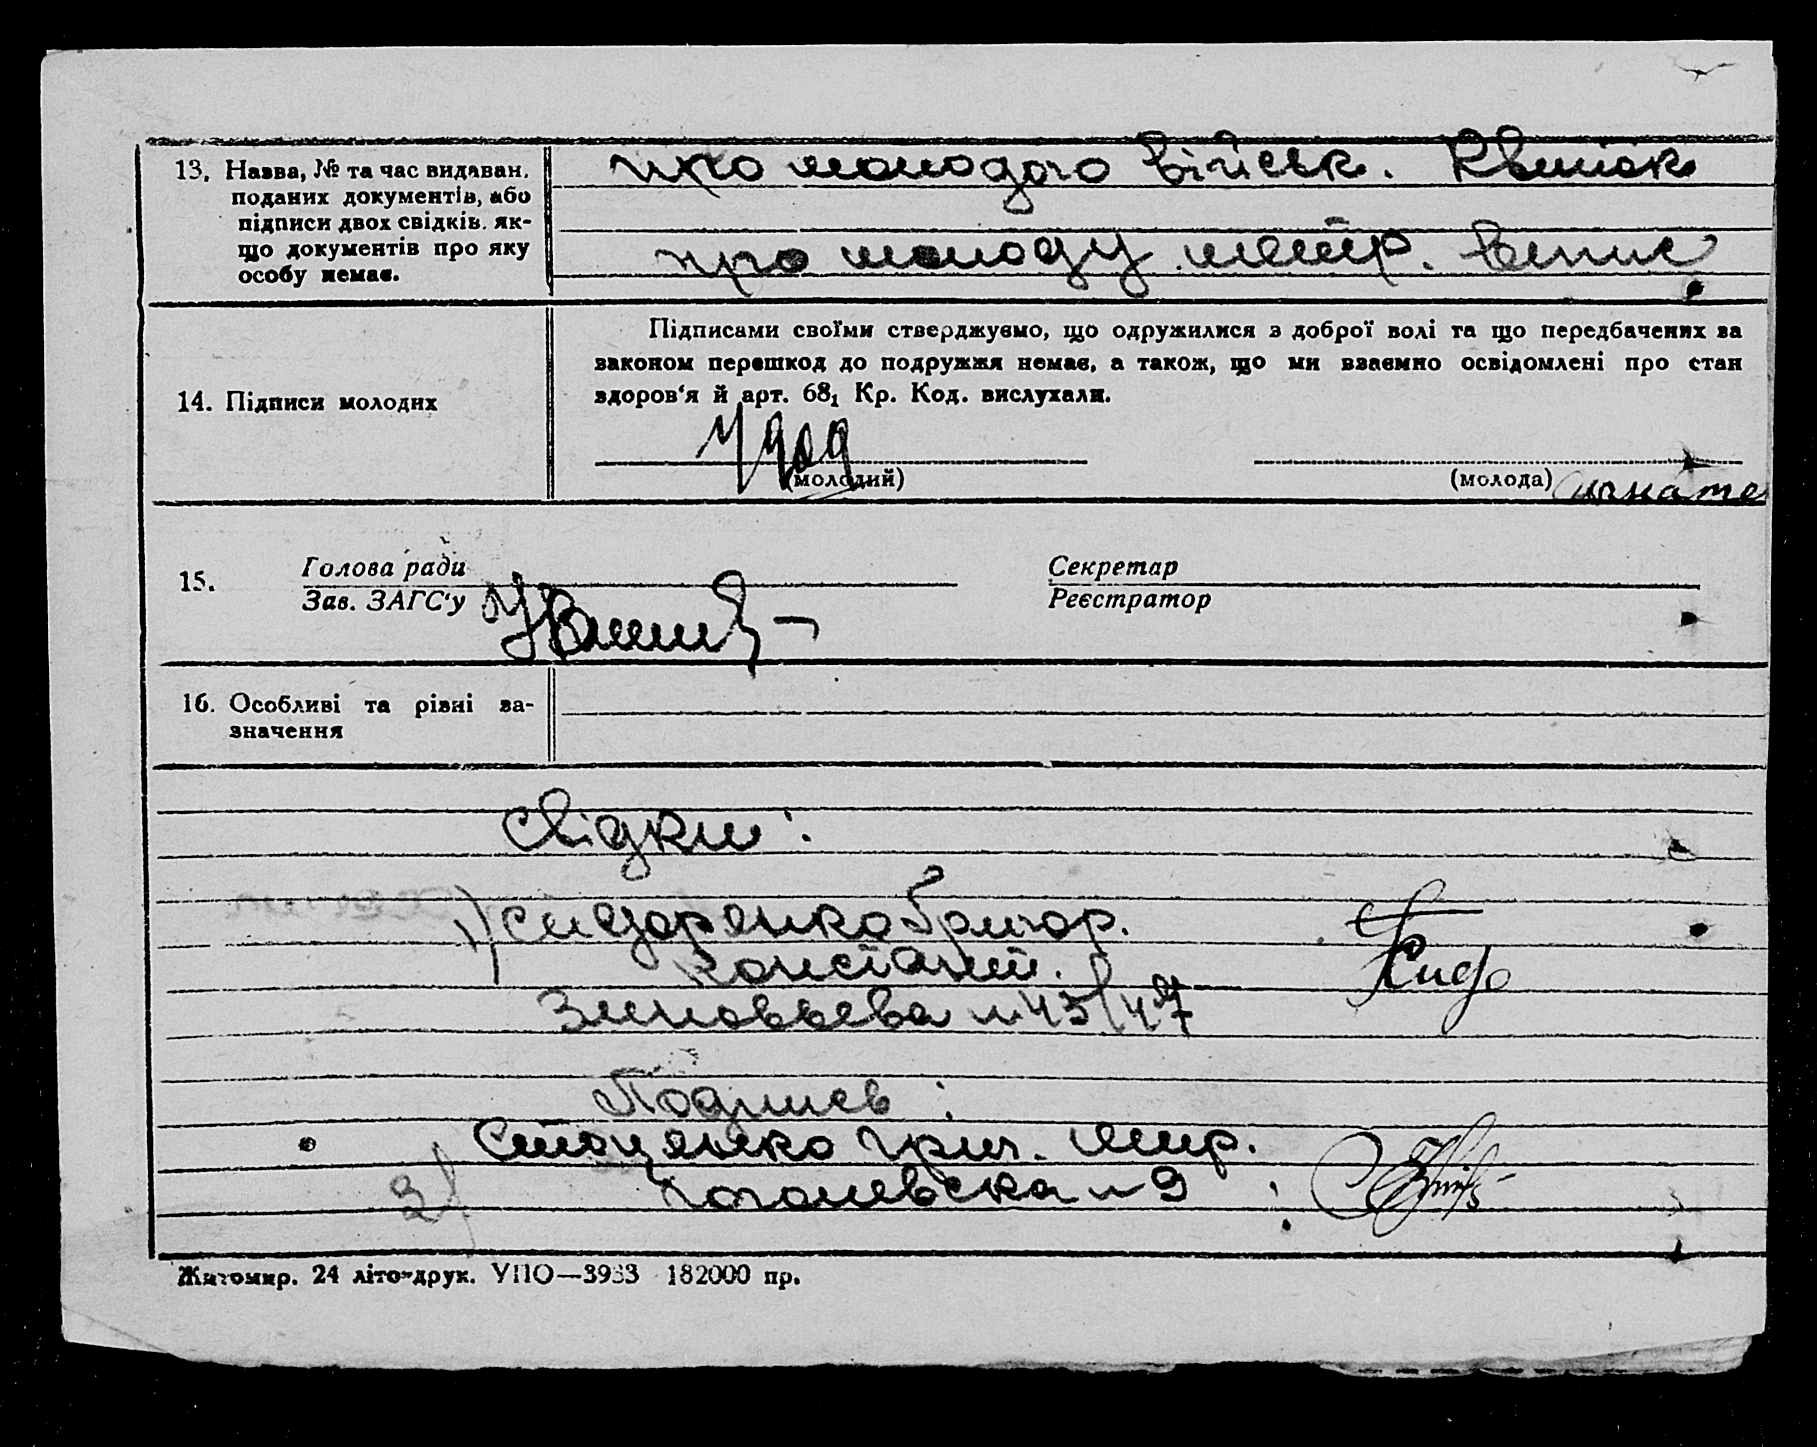 13. Назва, № та час видаван.
поданих документів, або
підписи двох свідків. як-
що документів про яку
особу немає.
про молодого військ. Квиток
про молоду метр. випис
14. Підписи молодих
Підписами своїми стверджуємо, що одружилися з доброї волі та що передбачених за
законом перешкод до подружжя немає, а також, що ми взаємно освідомлені про стан
здоров'я й арт. 68₁ Кр. Код. вислухали.
Удод
(молодий)
(молода) Игнате
15.
Голова ради
Зав. ЗАГС'у
Секретар
Реєстратор
16. Особливі та рівні за-
значення
Свідки:
1) Сидоренко Григор.
Констант.
Зиновьева № 45/47
Подпись:
2) Стоценко Григ. Мир.
Гоголевска № 9
Житомир. 24 літо-друк. УПО—3933 182000 пр.